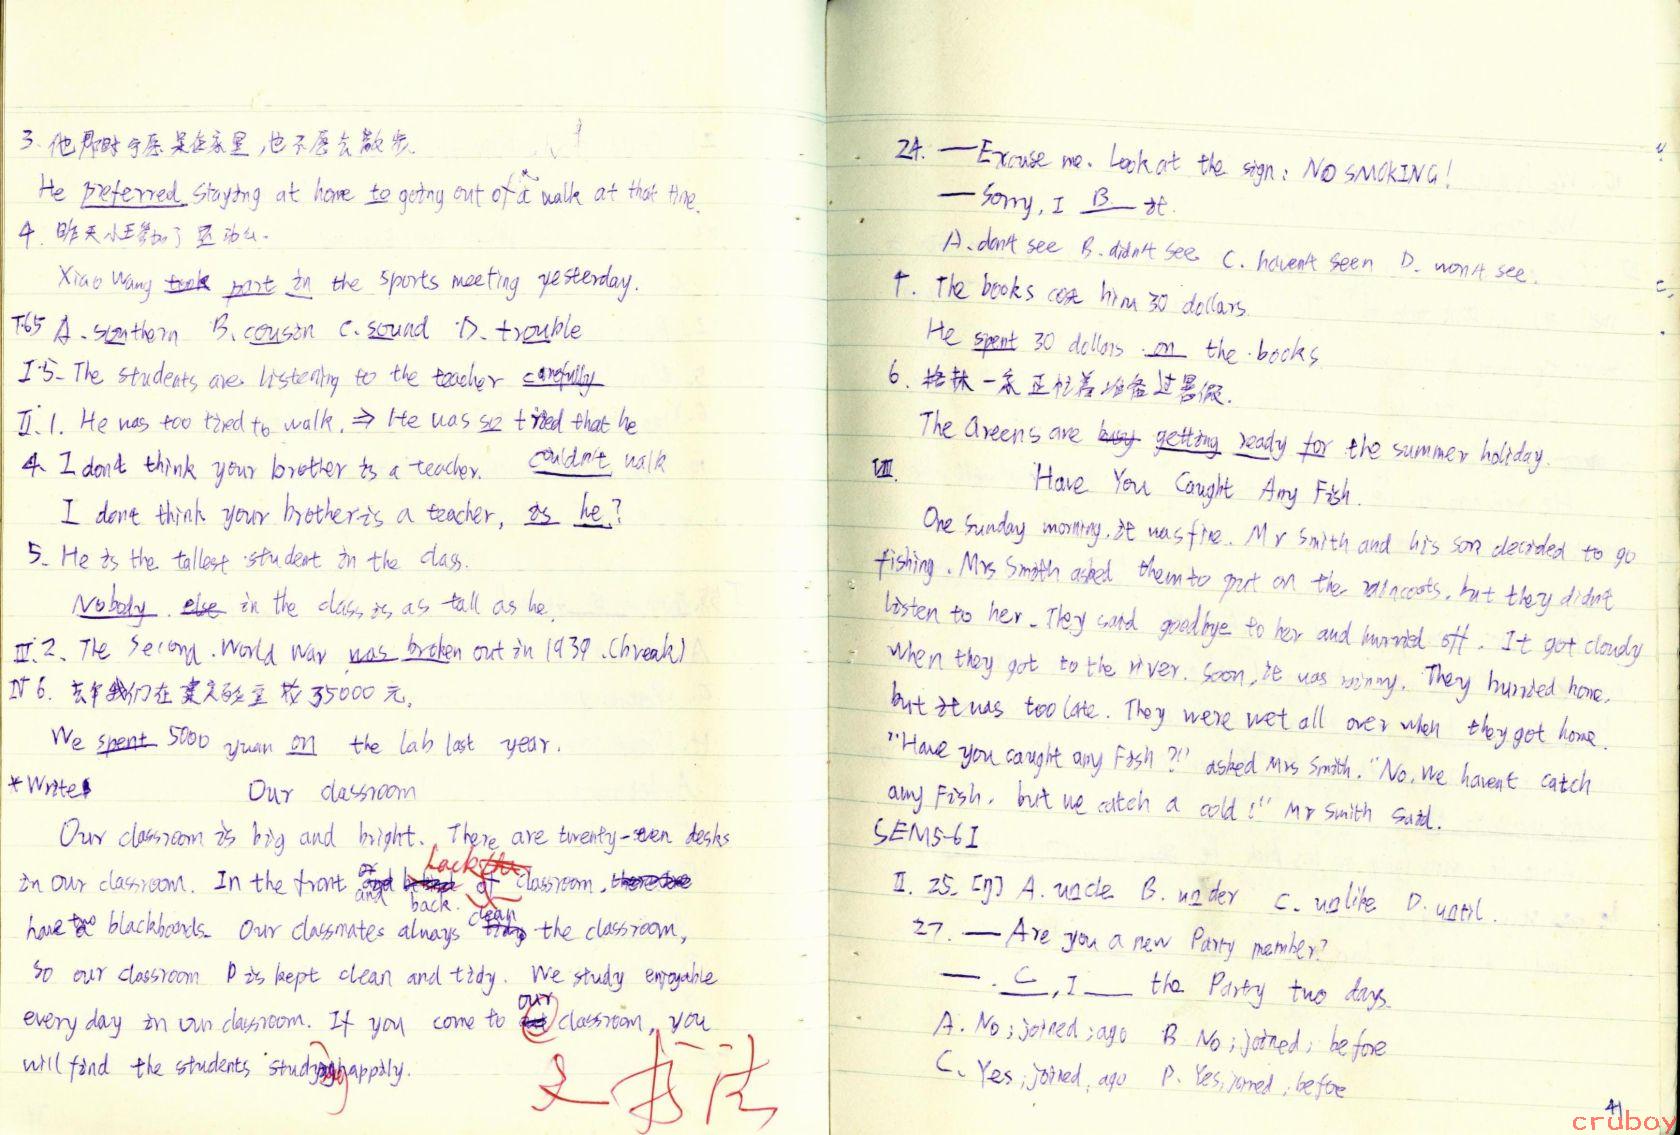 3. 他那时宁愿呆在家里,也不愿去散步.
He preferred staying at home to going out of a walk at that time.
4. 昨天小王参加了运动会.
Xiao Wang took part in the sports meeting yesterday.
T.65 A. southern B. cousin C. sound D. trouble
I.5. The students are listening to the teacher carefully
II.1. He was too tired to walk. ⇒ He was so tired that he
couldn't walk
4. I don't think your brother is a teacher.
I don't think your brother is a teacher, is he?
5. He is the tallest student in the class.
Nobody else in the class is as tall as he.
III.2. The Second World War was broken out in 1939. (break)
IV 6. 去年我们在实验室 5000 元.
We spent 5000 yuan on the lab last year.
*Write
Our classroom
Our classroom is big and bright. There are twenty-seven desks
in our classroom. In the front and back of classroom,
have two blackboards. Our classmates always clean the classroom,
so our classroom is kept clean and tidy. We study enjoyable
every day in our classroom. If you come to our classroom, you
will find the students studying happily.
24. —Excuse me. Look at the sign: NO SMOKING!
—Sorry, I B it.
A. don't see B. didn't see C. haven't seen D. won't see.
The books cost him 30 dollars.
He spent 30 dollars on the books
6. 格林一家正忙着准备过暑假.
The Greens are busy getting ready for the summer holiday.
VIII.
Have You Caught Any Fish.
One Sunday morning, it was fine. Mr Smith and his son decided to go
fishing. Mrs Smith asked them to put on the raincoats, but they didn't
listen to her. They said goodbye to her and hurried off. It got cloudy
when they got to the river. Soon, it was rainny. They hurried home,
but it was too late. They were wet all over when they got home.
"Have you caught any Fish?!" asked Mrs Smith. "No, we haven't catch
any Fish, but we catch a cold!" Mr Smith said.
SEM5-6I
II. 25. [ŋ] A. uncle B. under C. unlike D. until.
27. — Are you a new Party member?
— C, I ___ the Party two days
A. No; joined; ago B No; joined; before
C. Yes; joined; ago D. Yes; joined; before
41
cruboy